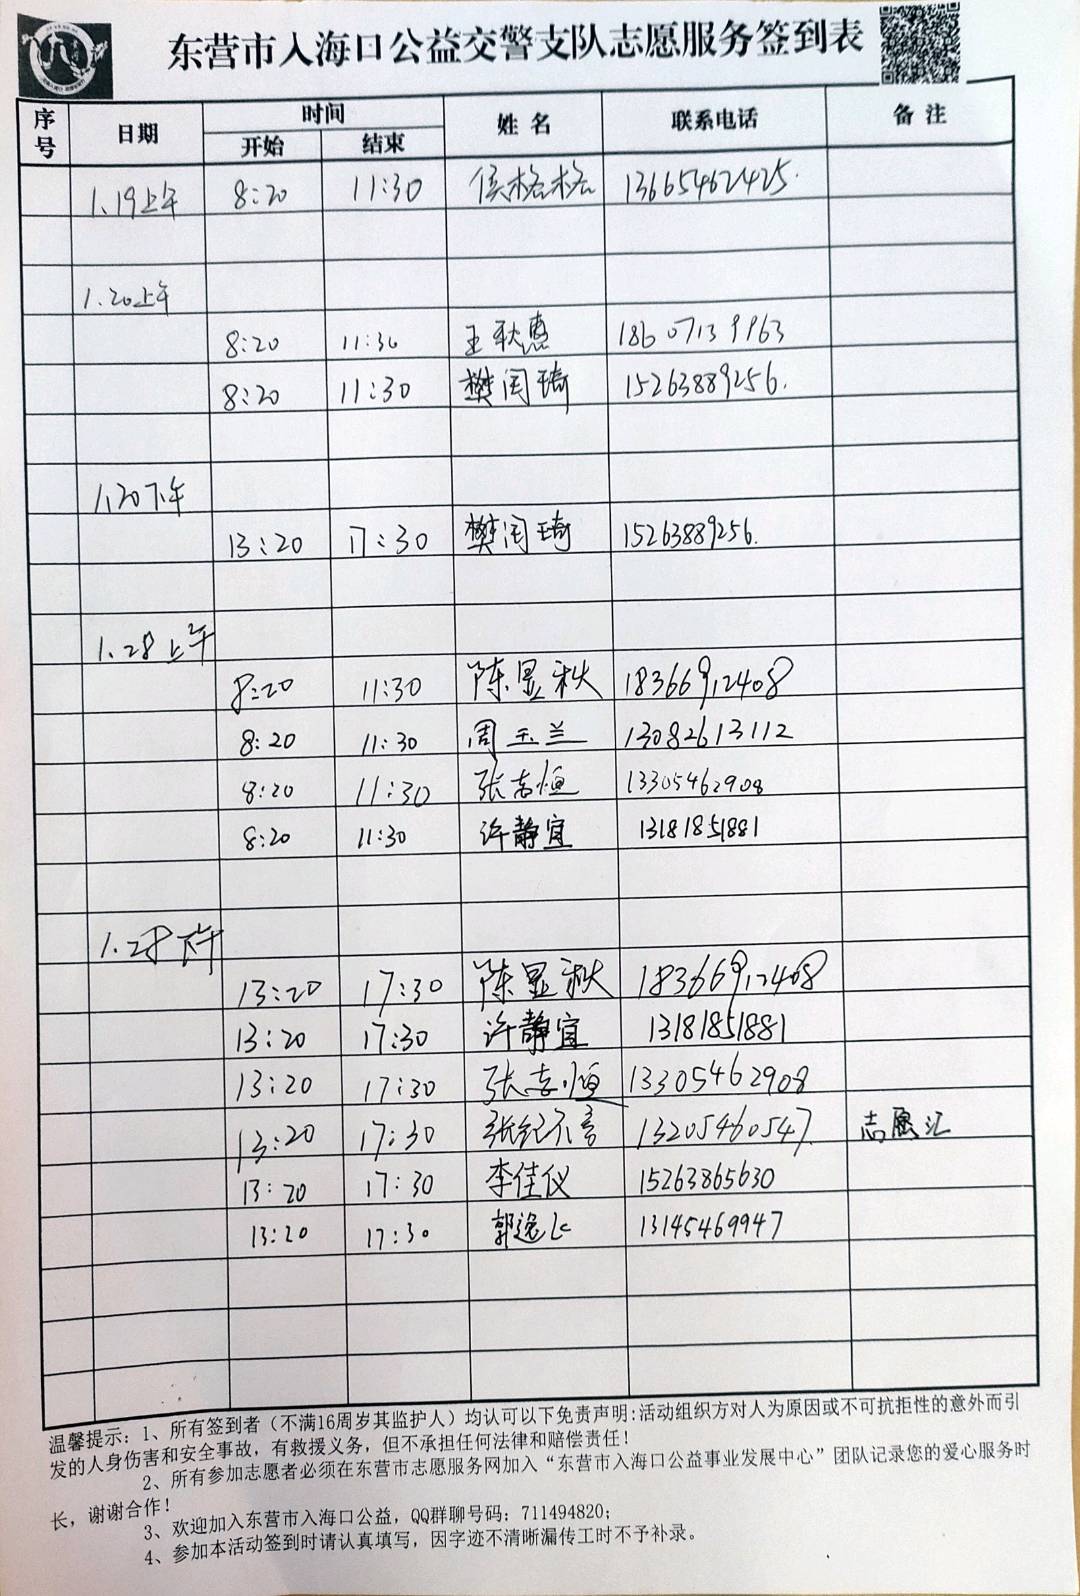 东营市入海口公益交警支队志愿服务签到表
序号 日期 时间 姓名 联系电话 备注
开始 结束
1.19上午 8:20 11:30 侯格格 13665462425.
1.20上午
8:20 11:30 王秋惠 18607139963
8:20 11:30 樊闰琦 15263889256.
1.20下午
13:20 17:30 樊闰琦 15263889256.
1.28上午
8:20 11:30 陈显秋 18366912408
8:20 11:30 周玉兰 13082613112
8:20 11:30 张志恒 13305462908
8:20 11:30 许静宜 13181851881
下午
13:20 17:30 陈显秋 18366912408
13:20 17:30 许静宜 13181851881
13:20 17:30 张志恒 13305462908
13:20 17:30 张纪不言 13205460547. 志愿汇
13:20 17:30 李佳仪 15263865630
13:20 17:30 郭逸飞 13145469947
温馨提示:1、所有签到者(不满16周岁其监护人)均认可以下免责声明:活动组织方对人为原因或不可抗拒性的意外而引
发的人身伤害和安全事故,有救援义务,但不承担任何法律和赔偿责任!
2、所有参加志愿者必须在东营市志愿服务网加入“东营市入海口公益事业发展中心”团队记录您的爱心服务时
长,谢谢合作!
3、欢迎加入东营市入海口公益,QQ群聊号码:711494820;
4、参加本活动签到时请认真填写,因字迹不清晰漏传工时不予补录。